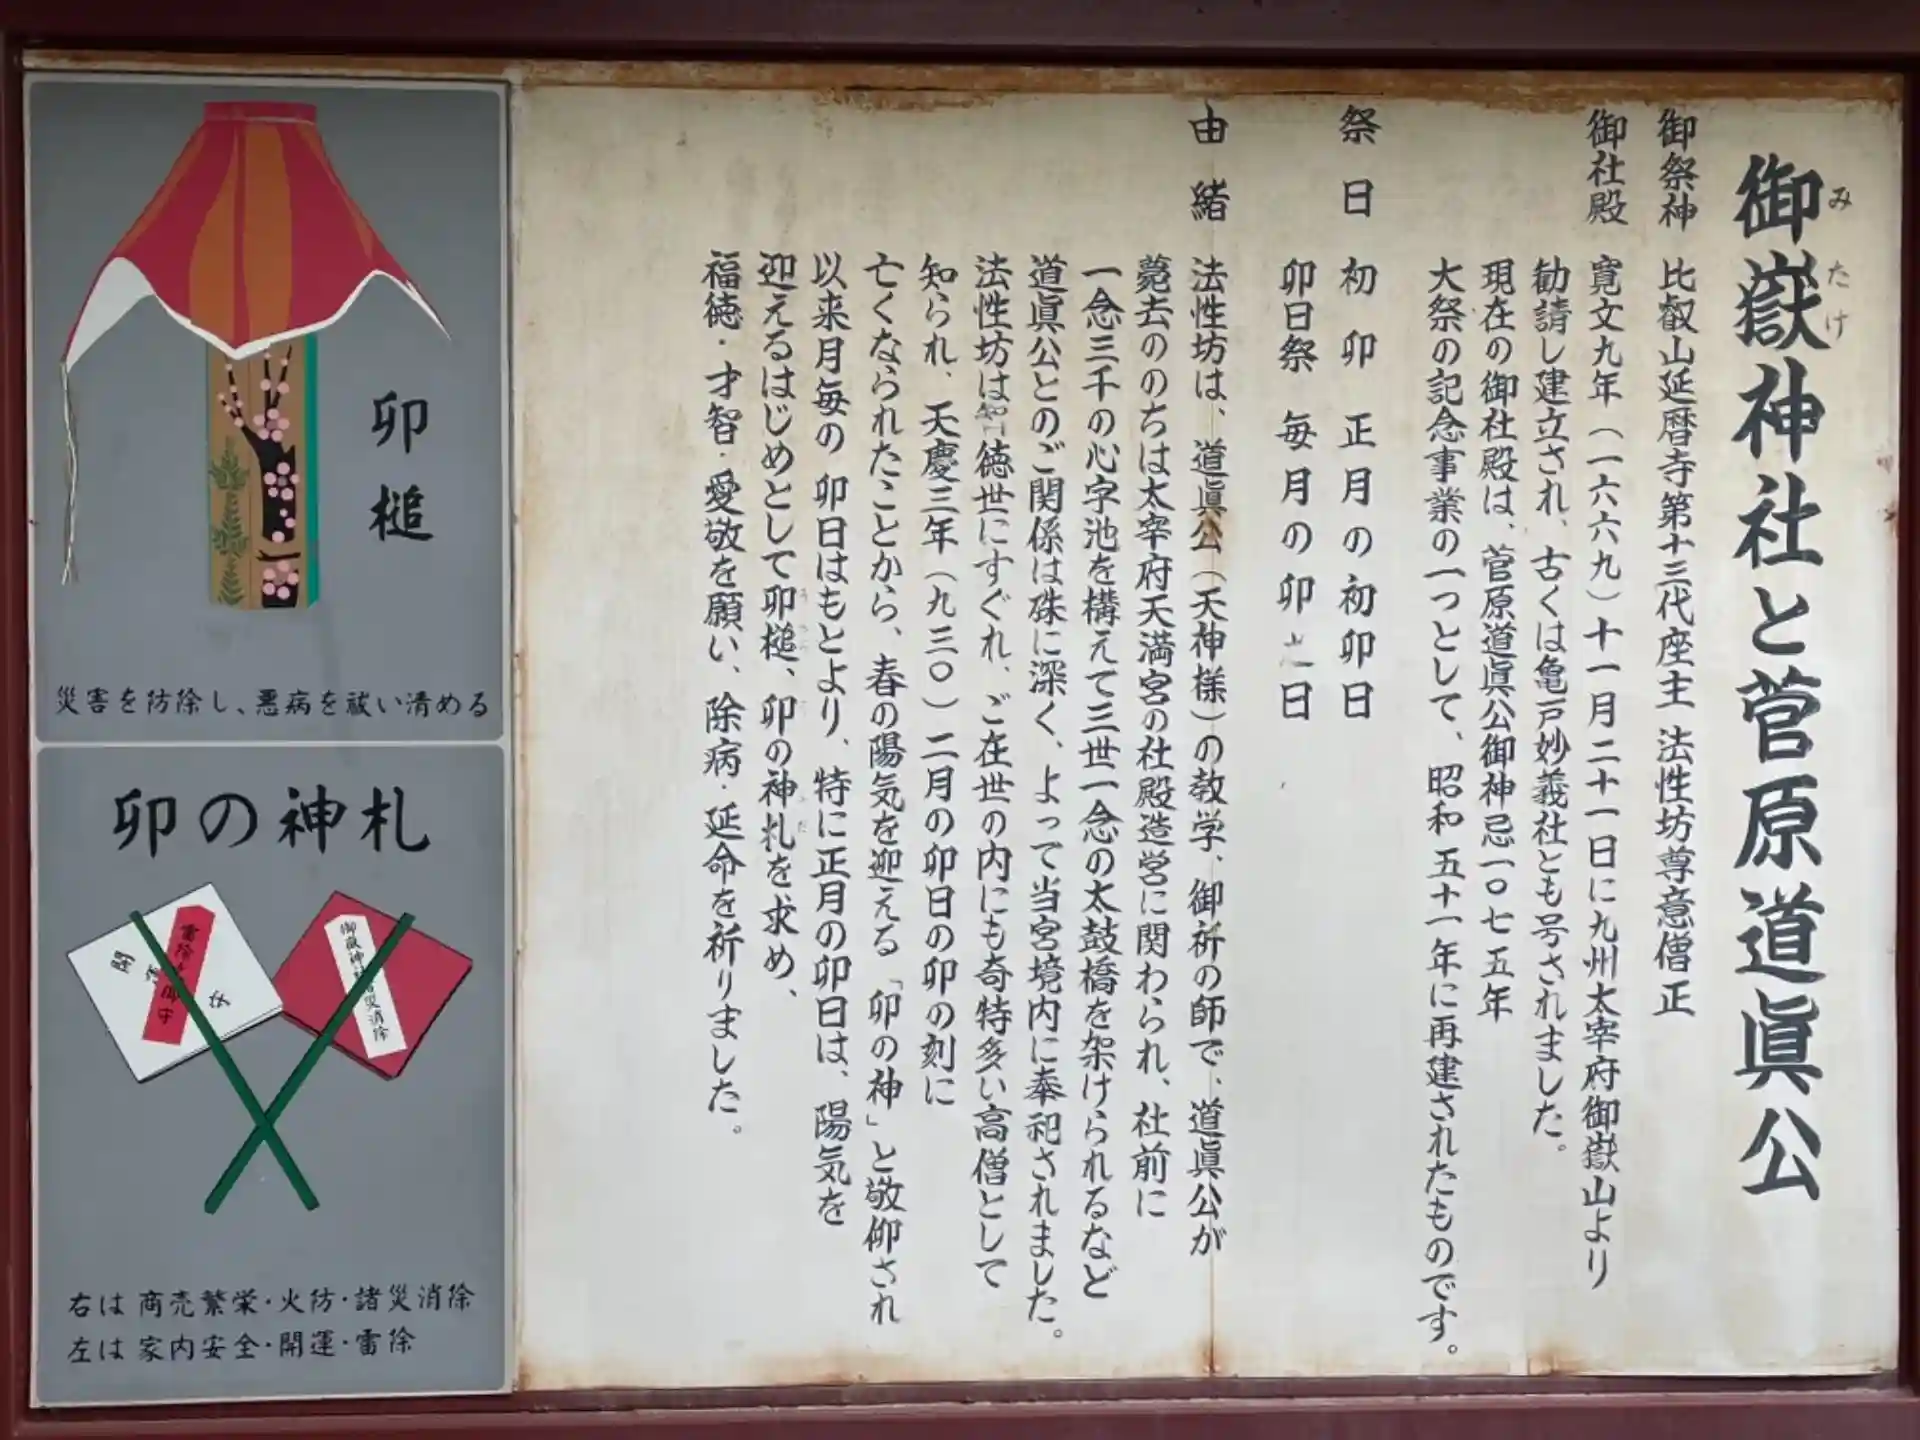 御嶽神社と菅原道眞公
みたけ
御祭神 比叡山延暦寺第十三代座主 法性坊尊意僧正
御社殿 寛文九年(一六六九)十一月二十一日に九州太宰府御嶽山より
勧請し建立され、古くは亀戸妙義社とも号されました。
現在の御社殿は、菅原道眞公御神忌一〇七五年
大祭の記念事業の一つとして、昭和五十一年に再建されたものです。
祭日 初卯 正月の初卯日
卯日祭 毎月の卯之日
由緒 法性坊は、道眞公(天神様)の教学、御祈の師で、道眞公が
薨去ののちは太宰府天満宮の社殿造営に関わられ、社前に
一念三千の心字池を構えて三世一念の太鼓橋を架けられるなど
道眞公とのご関係は殊に深く、よって当宮境内に奉祀されました。
法性坊は智徳世にすぐれ、ご在世の内にも奇特多い高僧として
知られ、天慶三年(九三〇)二月の卯日の卯の刻に
亡くなられたことから、春の陽気を迎える「卯の神」と敬仰され
以来月毎の 卯日はもとより、特に正月の卯日は、陽気を
迎えるはじめとして卯槌、卯の神札を求め、
福徳・才智・愛敬を願い、除病・延命を祈りました。
卯槌
災害を防除し、悪病を祓い清める
卯の神札
雷除 御守
開 運
御嶽神社 諸災消除
右は 商売繁栄・火防・諸災消除
左は 家内安全・開運・雷除